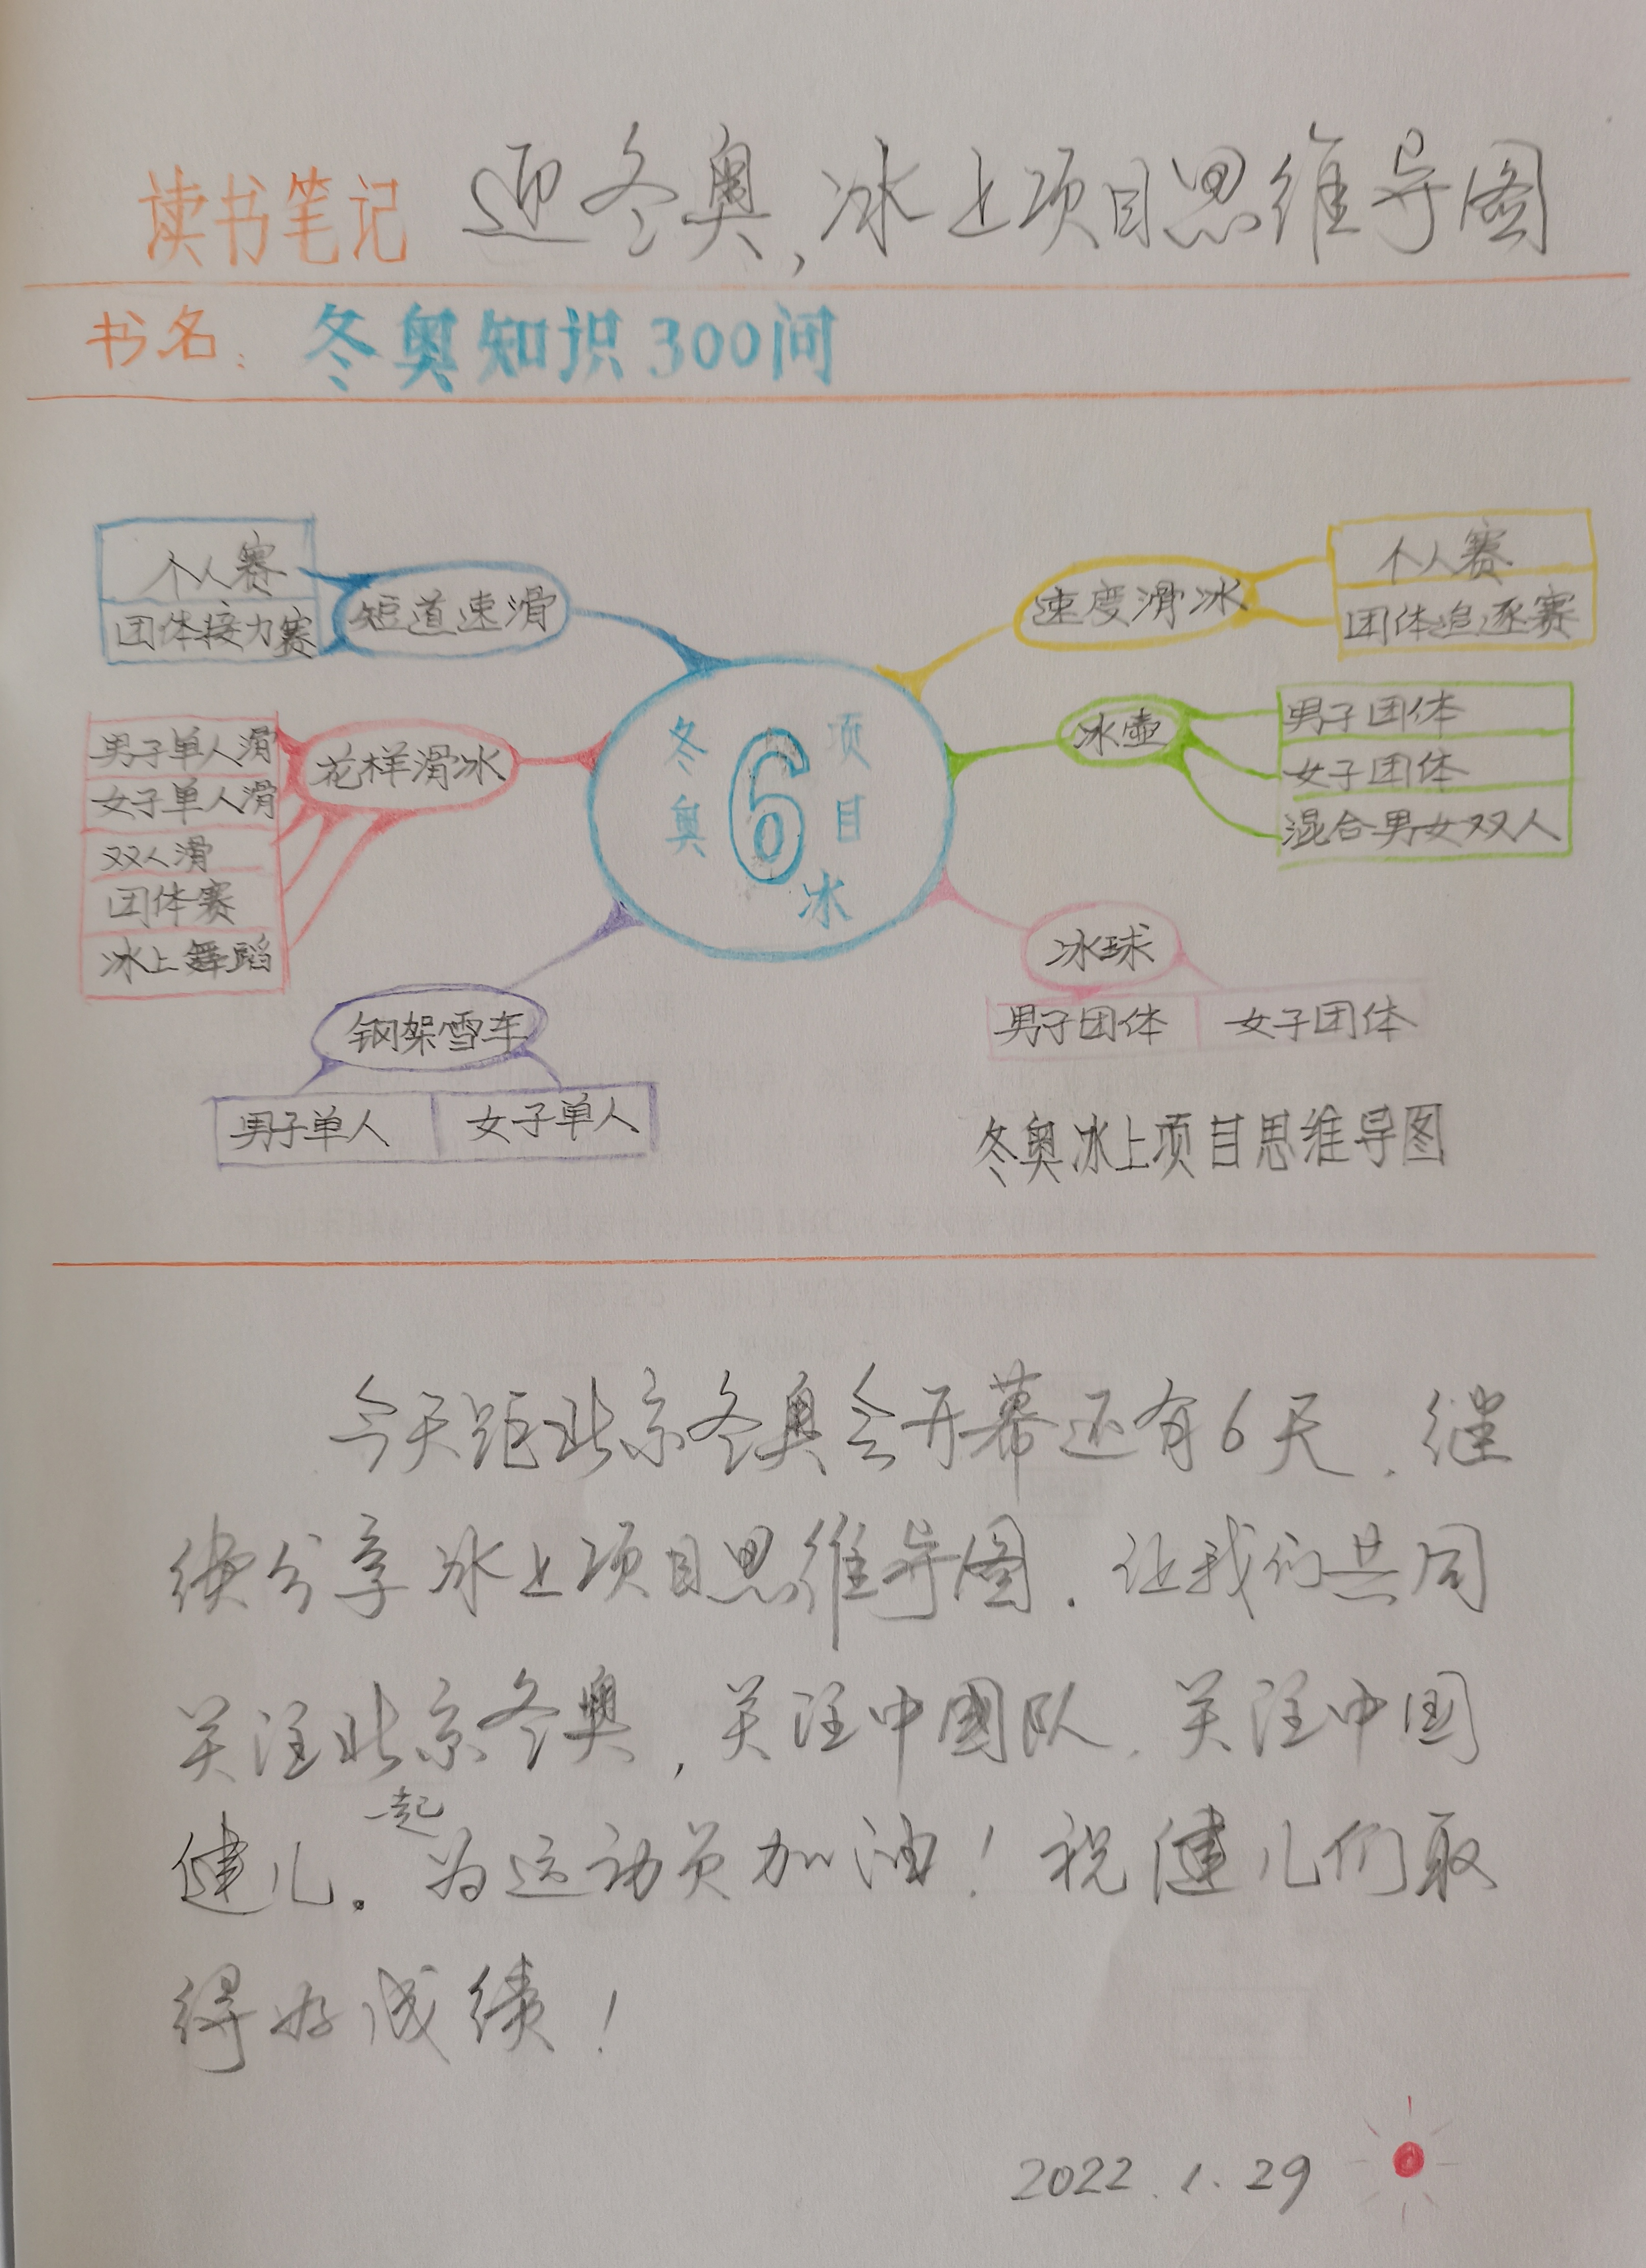 读书笔记 迎冬奥，冰上项目思维导图
书名：冬奥知识300问
个人赛
团体接力赛
短道速滑
男子单人滑
女子单人滑
双人滑
团体赛
冰上舞蹈
花样滑冰
钢架雪车
男子单人
女子单人
冬奥
6
项目
冰
速度滑冰
个人赛
团体追逐赛
冰壶
男子团体
女子团体
混合男女双人
冰球
男子团体
女子团体
冬奥冰上项目思维导图
今天距北京冬奥会开幕还有6天，继
续分享冰上项目思维导图．让我们共同
关注北京冬奥，关注中國队，关注中国
健儿。一起为运动员加油！祝健儿们取
得好成绩！
2022.1.29